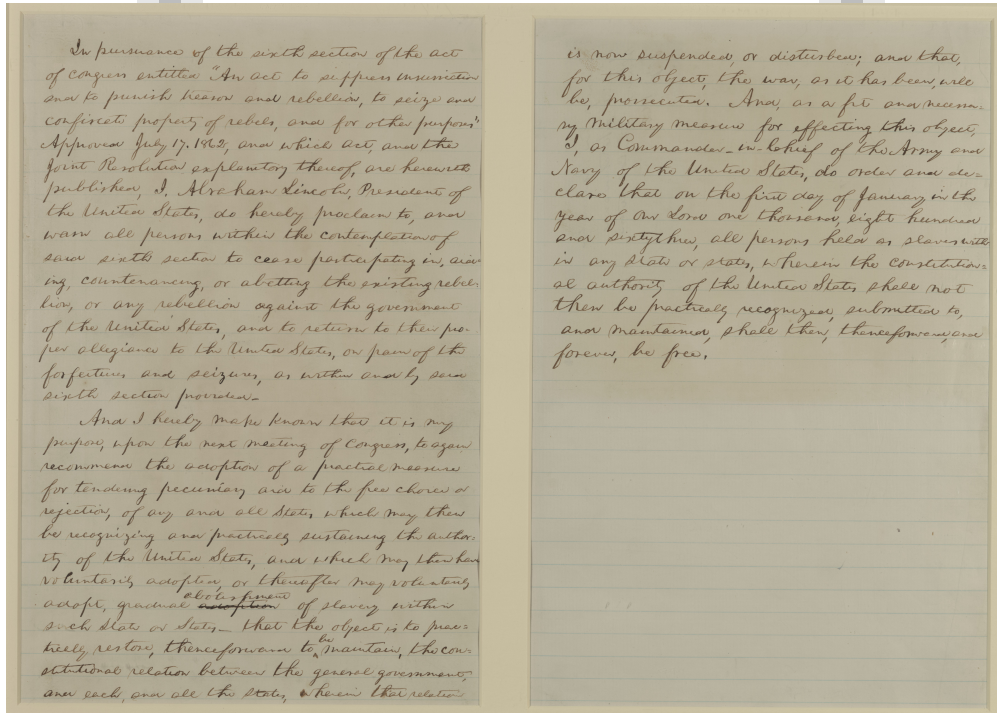 In pursuance of the sixth section of the act
of congress entitled "An act to suppress insurrection
and to punish treason and rebellion, to seize and
confiscate property of rebels, and for other purposes"
Approved July 17. 1862, and which act, and the
Joint Resolution explanatory thereof, are herewith
published, I, Abraham Lincoln, President of
the United States, do hereby proclaim to, and
warn all persons within the contemplation of
said sixth section to cease participating in, aid-
ing, countenancing, or abetting the existing rebel-
lion, or any rebellion against the government
of the United States, and to return to their pro-
per allegiance to the United States, on pain of the
forfeitures and seizures, as within and by said
sixth section provided—
And I hereby make known that it is my
purpose, upon the next meeting of Congress, to again
recommend the adoption of a practical measure
for tendering pecuniary aid to the free choice or
rejection, of any and all States, which may then
be recognizing and practically sustaining the author-
ity of the United States, and which may then have
voluntarily adopted, or thereafter may voluntarily
abolishment
adopt, gradual adoption of slavery within
such State or States— that the object is to prac-
tically restore, thenceforward to be maintain, the con-
stitutional relation between the general government,
and each, and all the states, wherein that relation
is now suspended, or disturbed; and that,
for this object, the war, as it has been, will
be, prosecuted. And, as a fit and necessa-
ry military measure for effecting this object,
I, as Commander-in-Chief of the Army and
Navy of the United States, do order and de-
clare that on the first day of January in the
year of Our Lord one thousand, eight hundred
and sixtythree, all persons held as slaves with-
in any state or states, wherein the constitution-
al authority of the United States shall not
then be practically recognized, submitted to,
and maintained, shall then, thenceforward, and
forever, be free.